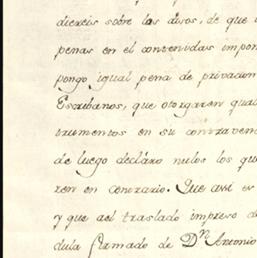 diereis sobre las dichas, de que
penas en él contenidas impon
pongo igual pena de privacion
Escribanos, que otorgaren qual
trumentos en su contraven
de luego decláro nulos los que
ren en contrario. Que asi es
y que al traslado impreso de
dula firmado de Dn Antonio